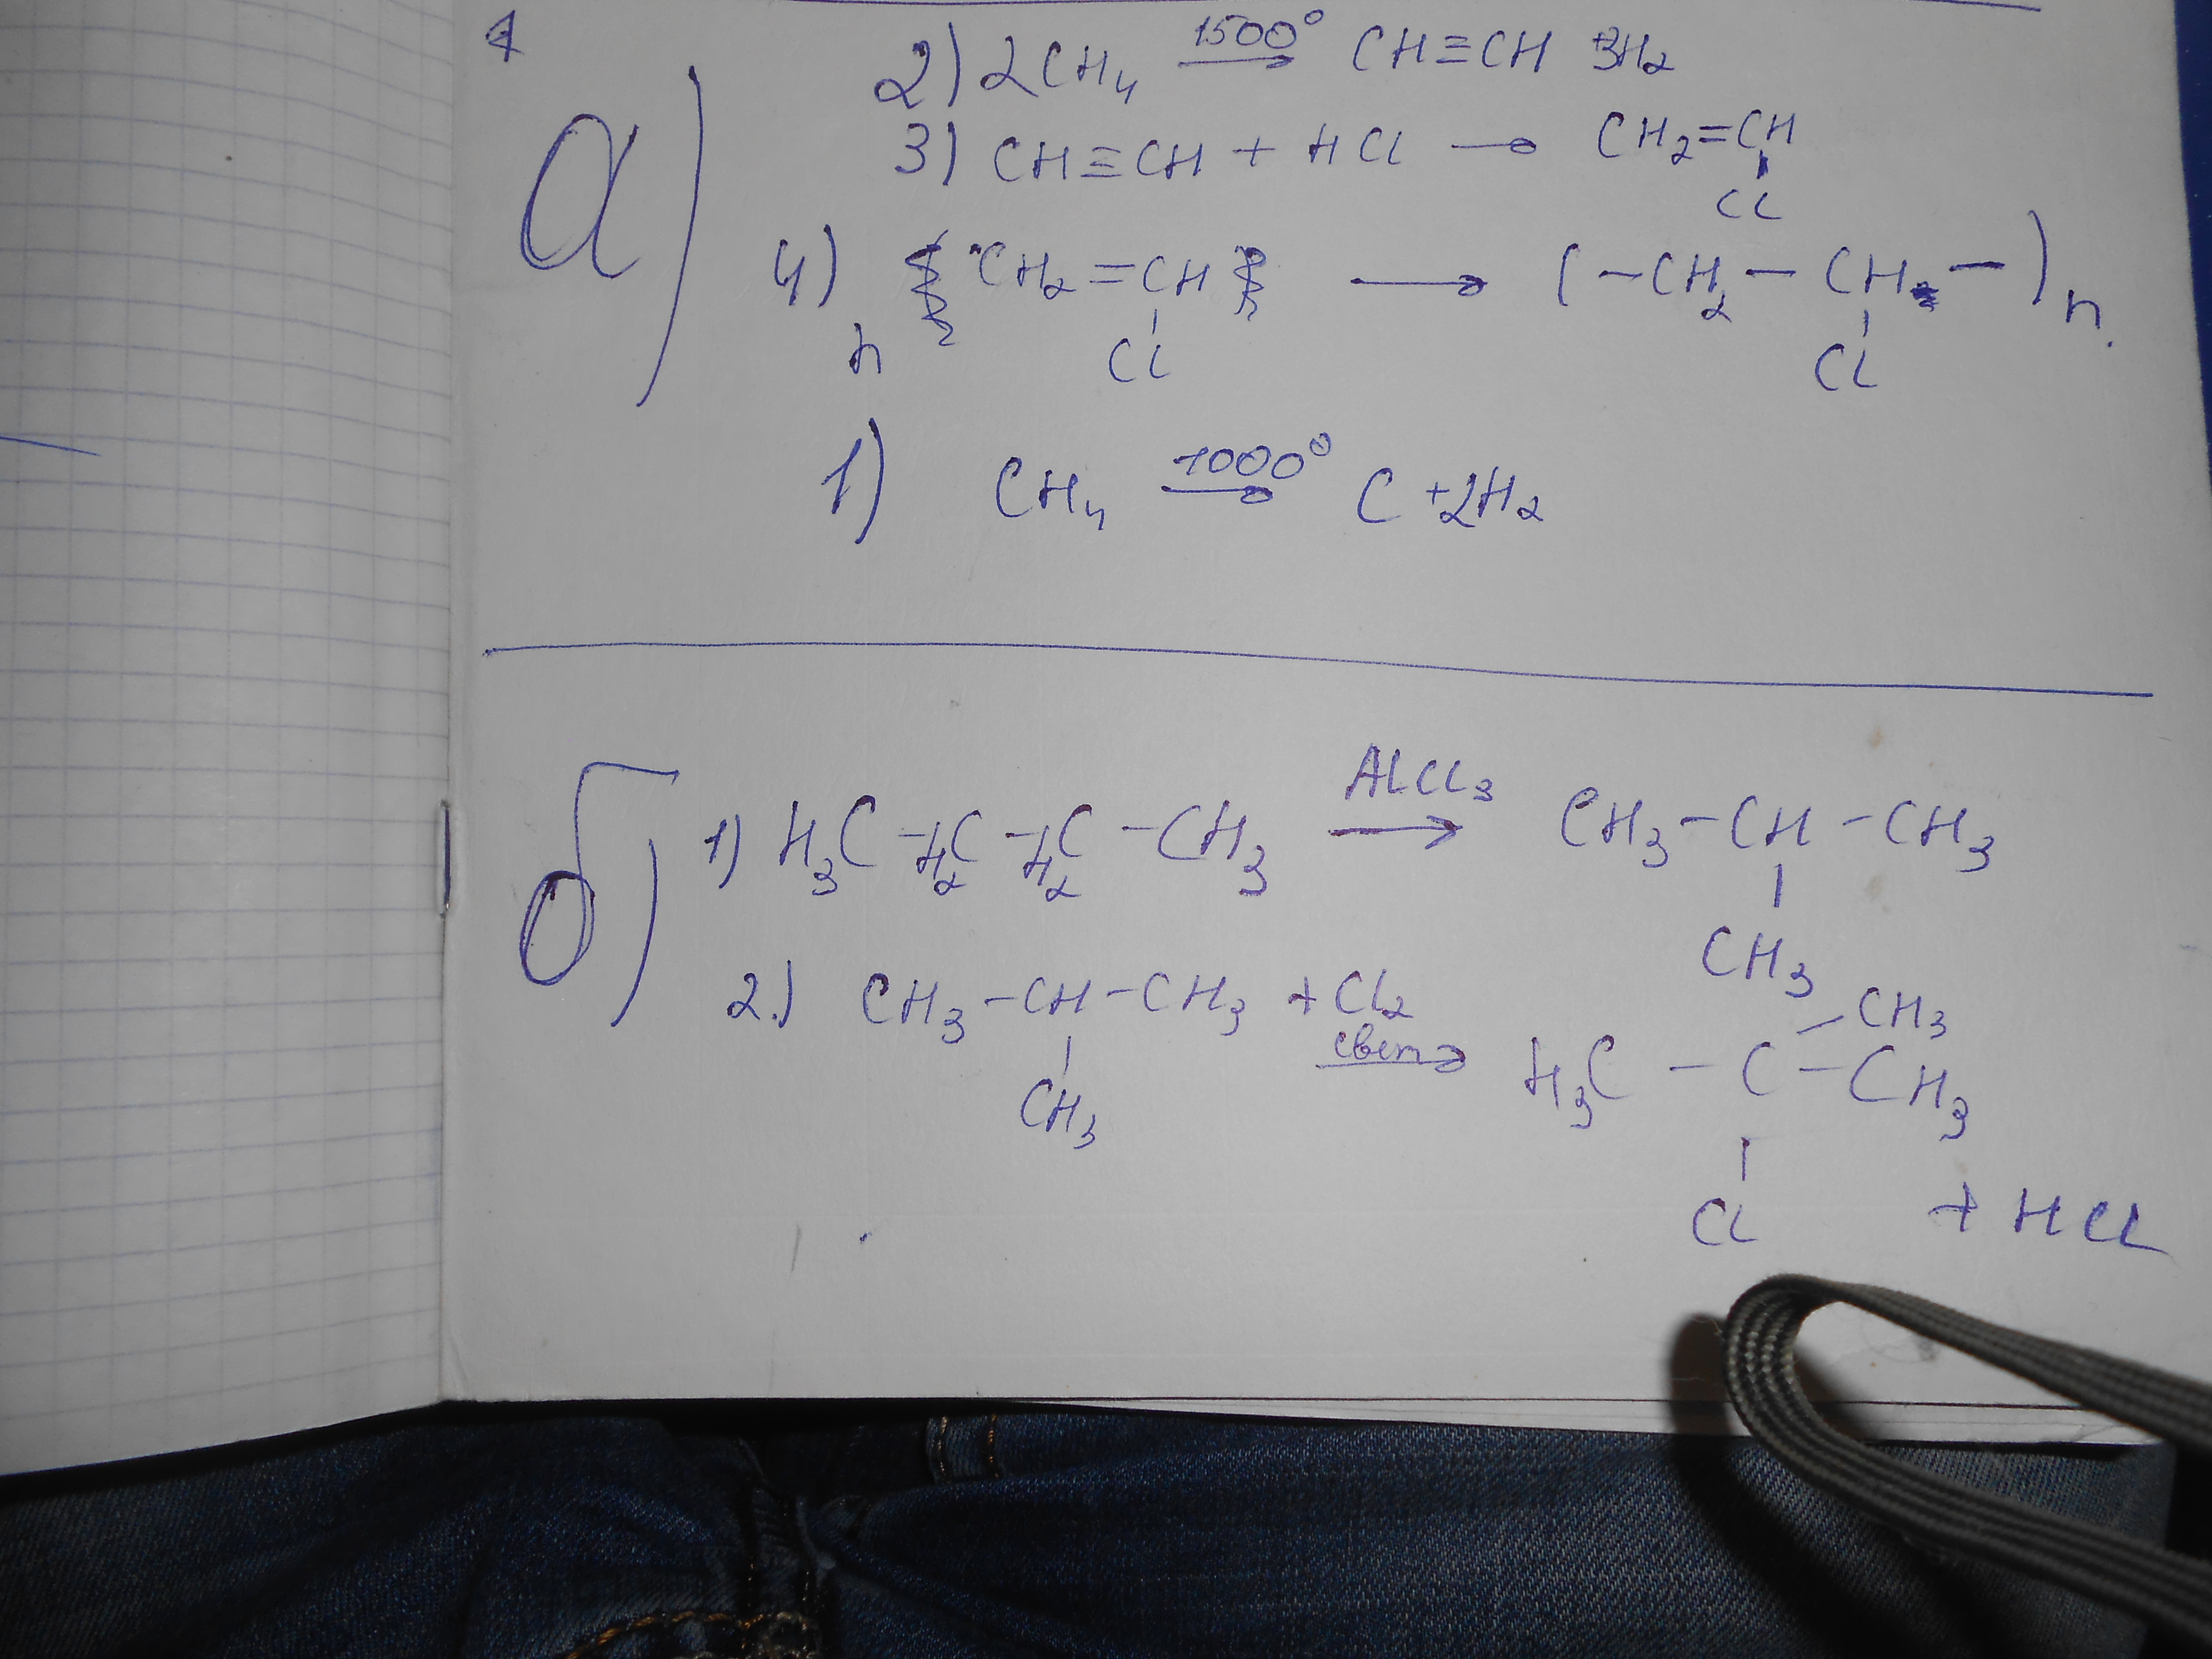 а)
2) 2CH₄ 1500° → CH≡CH +3H₂
3) CH≡CH + HCl → CH₂=CH
Cl
4) CH₂=CH → (–CH₂–CH–)n.
n Cl Cl
1) CH₄ 1000° → C +2H₂
б)
AlCl₃
1) H₃C–H₂C–H₂C–CH₃ → CH₃–CH–CH₃
CH₃
2.) CH₃–CH–CH₃ +Cl₂
CH₃
свет → H₃C–C–CH₃
CH₃
Cl + HCl